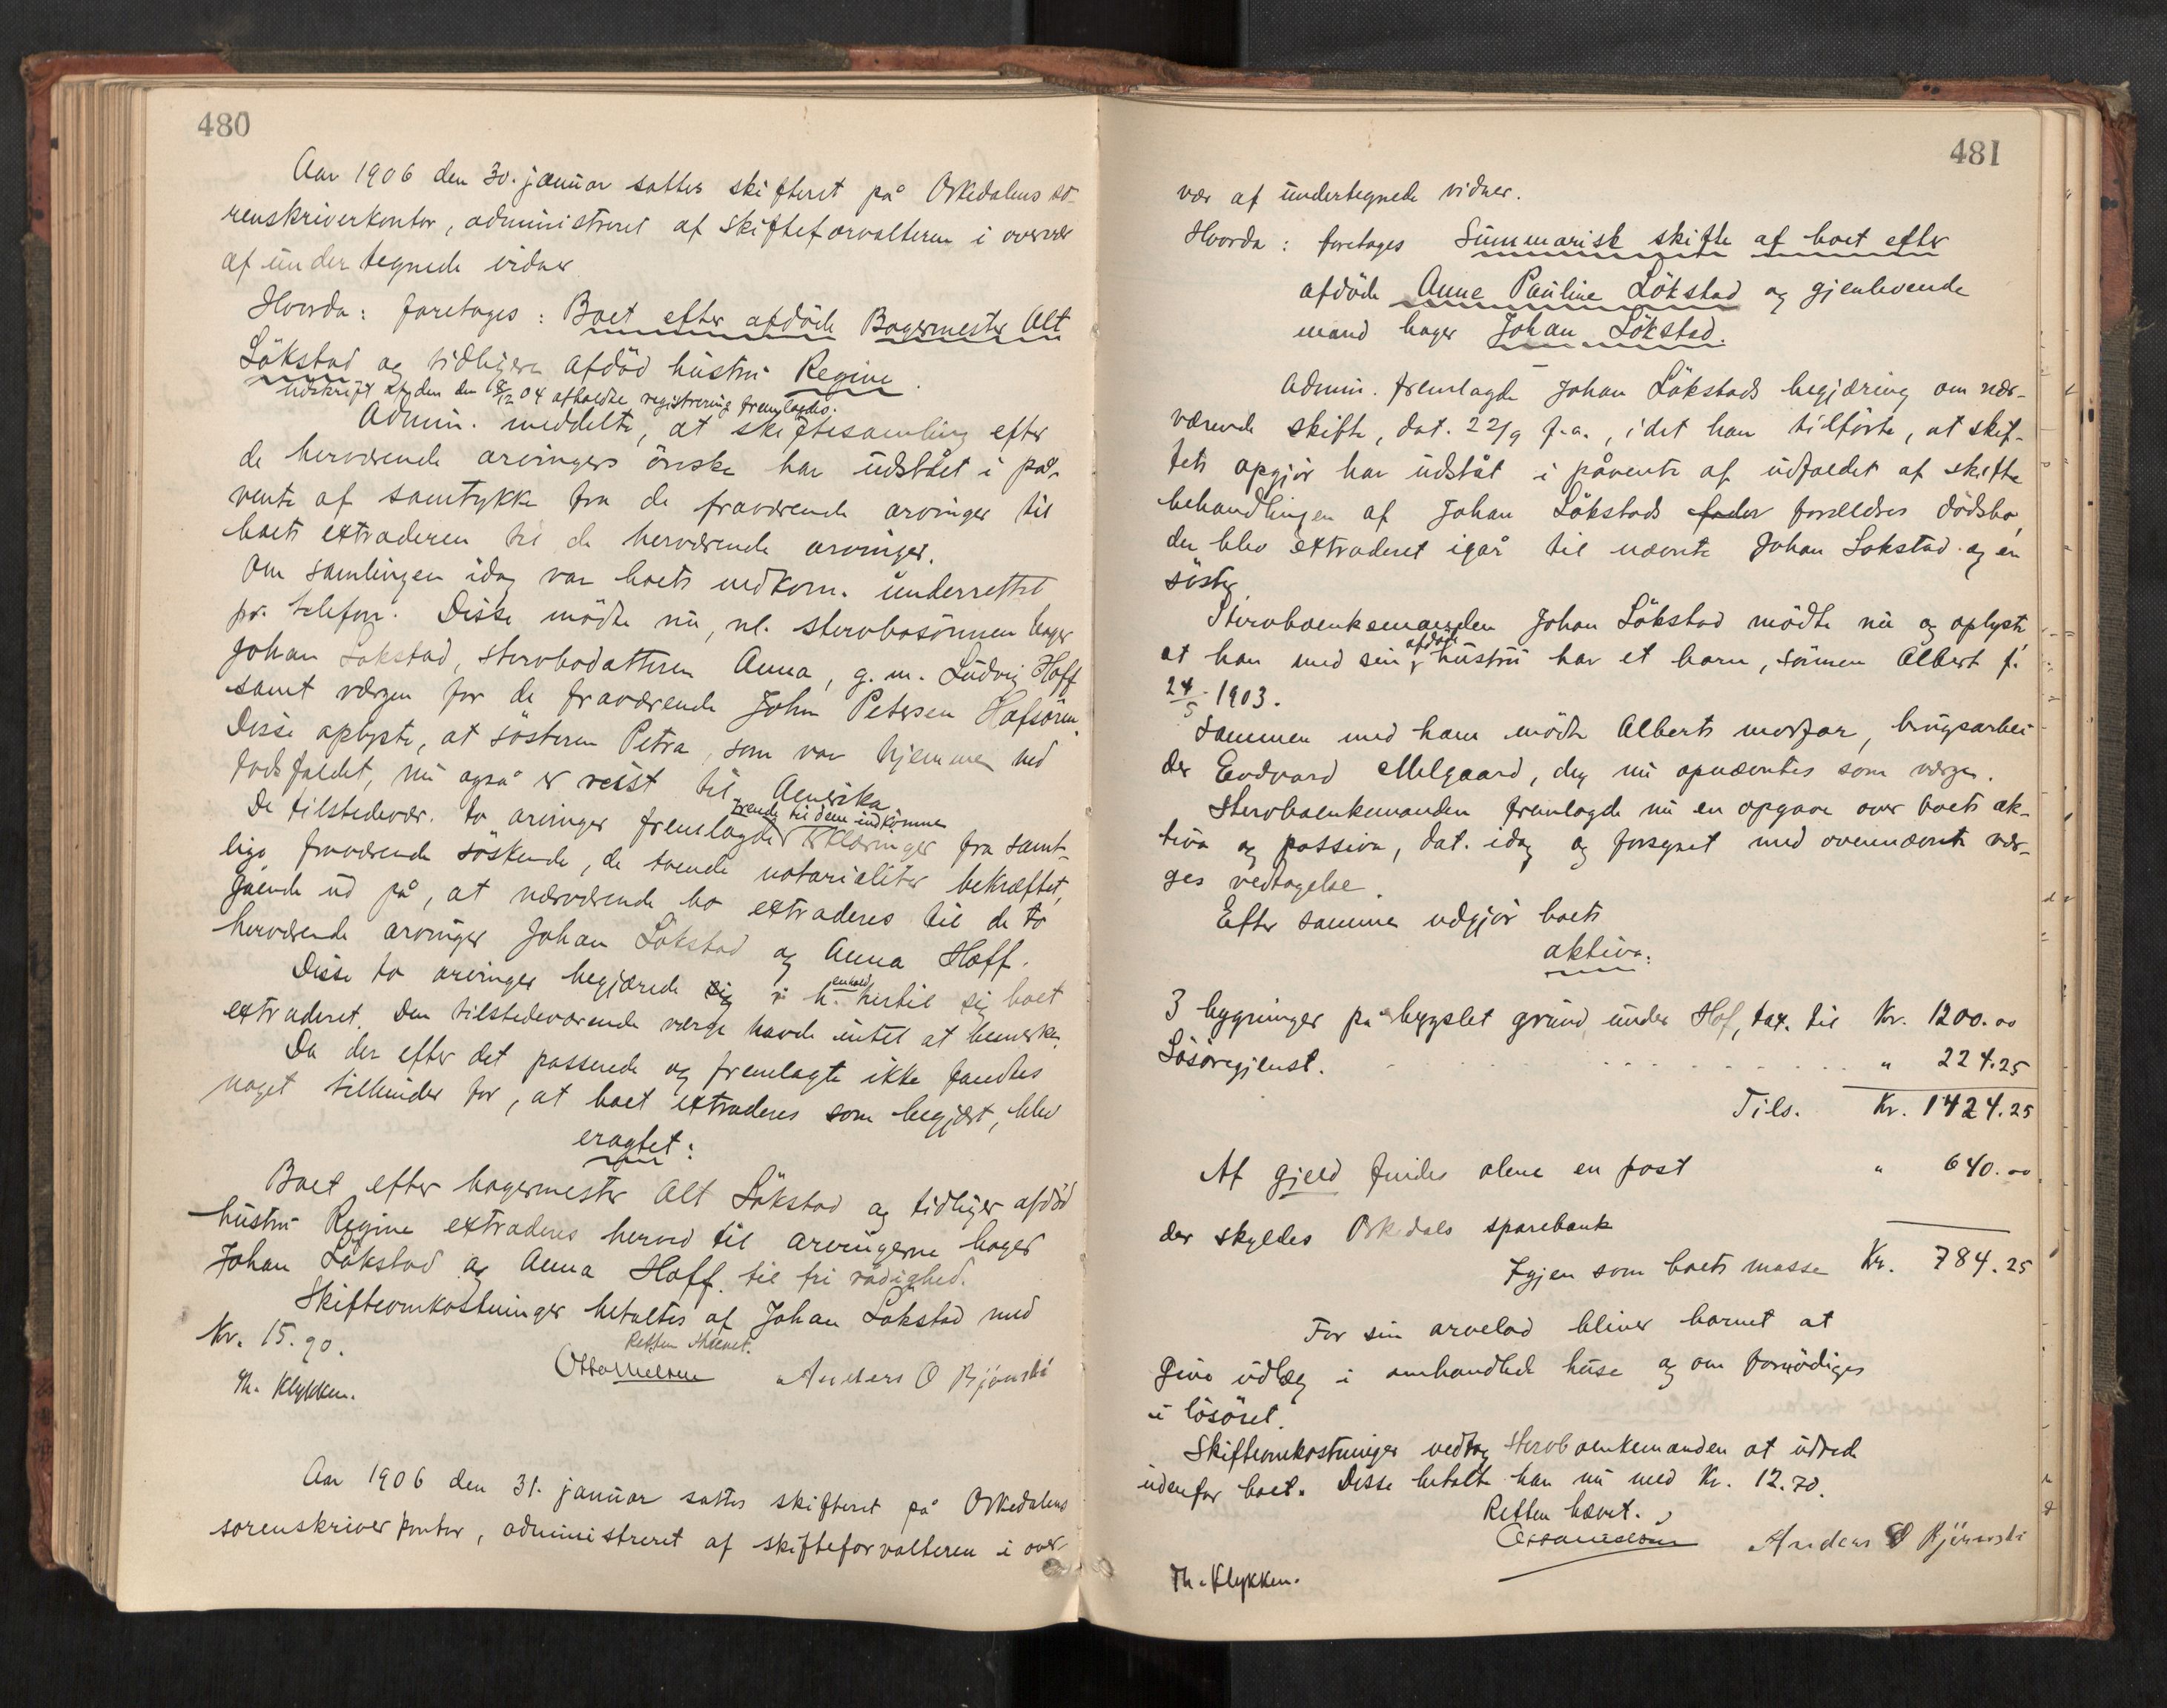 480
Aar 1906 den 30. januar sattes skifteret på Orkedalens so-
renskriverkontor, administreret af skifteforvalteren i overvær
af undertegnede vidner
Hvorda: foretoges: Boet efter afdöde Bagermester Alt
Lökstad og tidligere afdöd hustru Regine.
Udskrift af den den 8/12 04 afholdte registrering fremlagdes.
Admin. meddelte, at skiftesamling efter
de herværende arvingers önske har udstået i på-
vente af samtykke fra de fraværende arvinger til
boets extraderen til de herværende arvinger.
Om samlingen idag var boets vedkom. underrettet
pr. telefon. Disse mödte nu, nl. stervbosönnen bager
Johan Lökstad, stervbodatteren Anna, g. m. Ludvig Hoff
samt værgen for de fraværende John Petersen Hofsören.
Disse oplyste, at sösteren Petra, som var hjemme ved
dödsfaldet, nu også er reist til Amerika.
De tilstedevær. to arvinger fremlagde til dem indkomne erklæringer fra samt-
lige fraværende söskende, de tvende notarialiter bekræftet,
gående ud på, at nærværende bo extraderes til de to
herværende arvinger Johan Lökstad og Anna Hoff.
Disse to arvinger begjærede i h. enhold hertil sig boet
extraderet. Den tilstedeværende værge havde intet at bemærke.
Da der efter det passerede og fremlagte ikke fandtes
noget tilhinder for, at boet extraderes som begjært, blev
eragtet:
Boet efter bagermester Alt Lökstad og tidliger afdöd
hustru Regine extraderes herved til arvingerne bager
Johan Lökstad og Anna Hoff til fri rådighed.
Skifteomkostninger betaltes af Johan Lökstad med
Kr. 15.90.
Retten hævet.
Anders O Bjørnsli
Th. Klykken.
Aar 1906 den 31. januar sattes skifteret på Orkedalens
sorenskriverkontor, administreret af skifteforvalteren i over-
481
vær af undertegnede vidner.
Hvorda: foretoges Summarisk skifte af boet efter
afdöde Anne Pauline Lökstad og gjenlevende
mand bager Johan Lökstad.
Admin. fremlagde Johan Lökstads begjæring om nær-
værende skifte, dat. 22/9 f.a., idet han tilförte, at skif-
tets opgjör har udstået i påvente af udfaldet af skifte
behandlingen af Johan Lökstads fader forældres dödsbo,
der blev extraderet igår til nævnte Johan Lökstad og en
söster.
Stervboenkemanden Johan Lökstad mödte nu og oplyste
at han med sin afdöde hustru har et barn, sönnen Albert f.
24/5 1903.
Sammen med ham mödte Alberts morfar, brugsarbei-
der Eedvard Melgaard, der nu opnævntes som værge.
Stervboenkemanden fremlagde nu en opgave over boets ak-
tiva og passiva, dat. idag og forsynet med ovennævnte vær-
ges vedtagelse.
Efter samme udgjör boets
aktiva:
3 bygninger på bygslet grund under Hof, tax. til Kr. 1200.00
Lösöregjenst. " 224.25
Tils. Kr. 1424.25
Af gjeld findes alene en post " 640.00
der skyldes Orkedals sparebank
Igjen som boets masse Kr. 784.25
For sin arvelod bliver barnet at
give udlæg i omhandlede huse og om fornödiges
i lösöret.
Skifteomkostninger vedtog stervboenkemanden at udrede
udenfor boet. Disse betalte han nu med Kr. 12.70.
Retten hævet.
Anders O Bjørnsli
Th. Klykken.